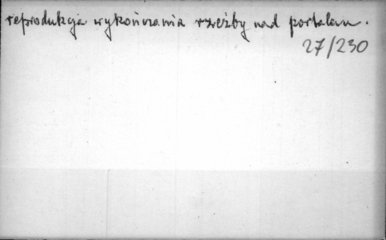 reprodukcja wykończenia rzeźby nad portalem.
27/230